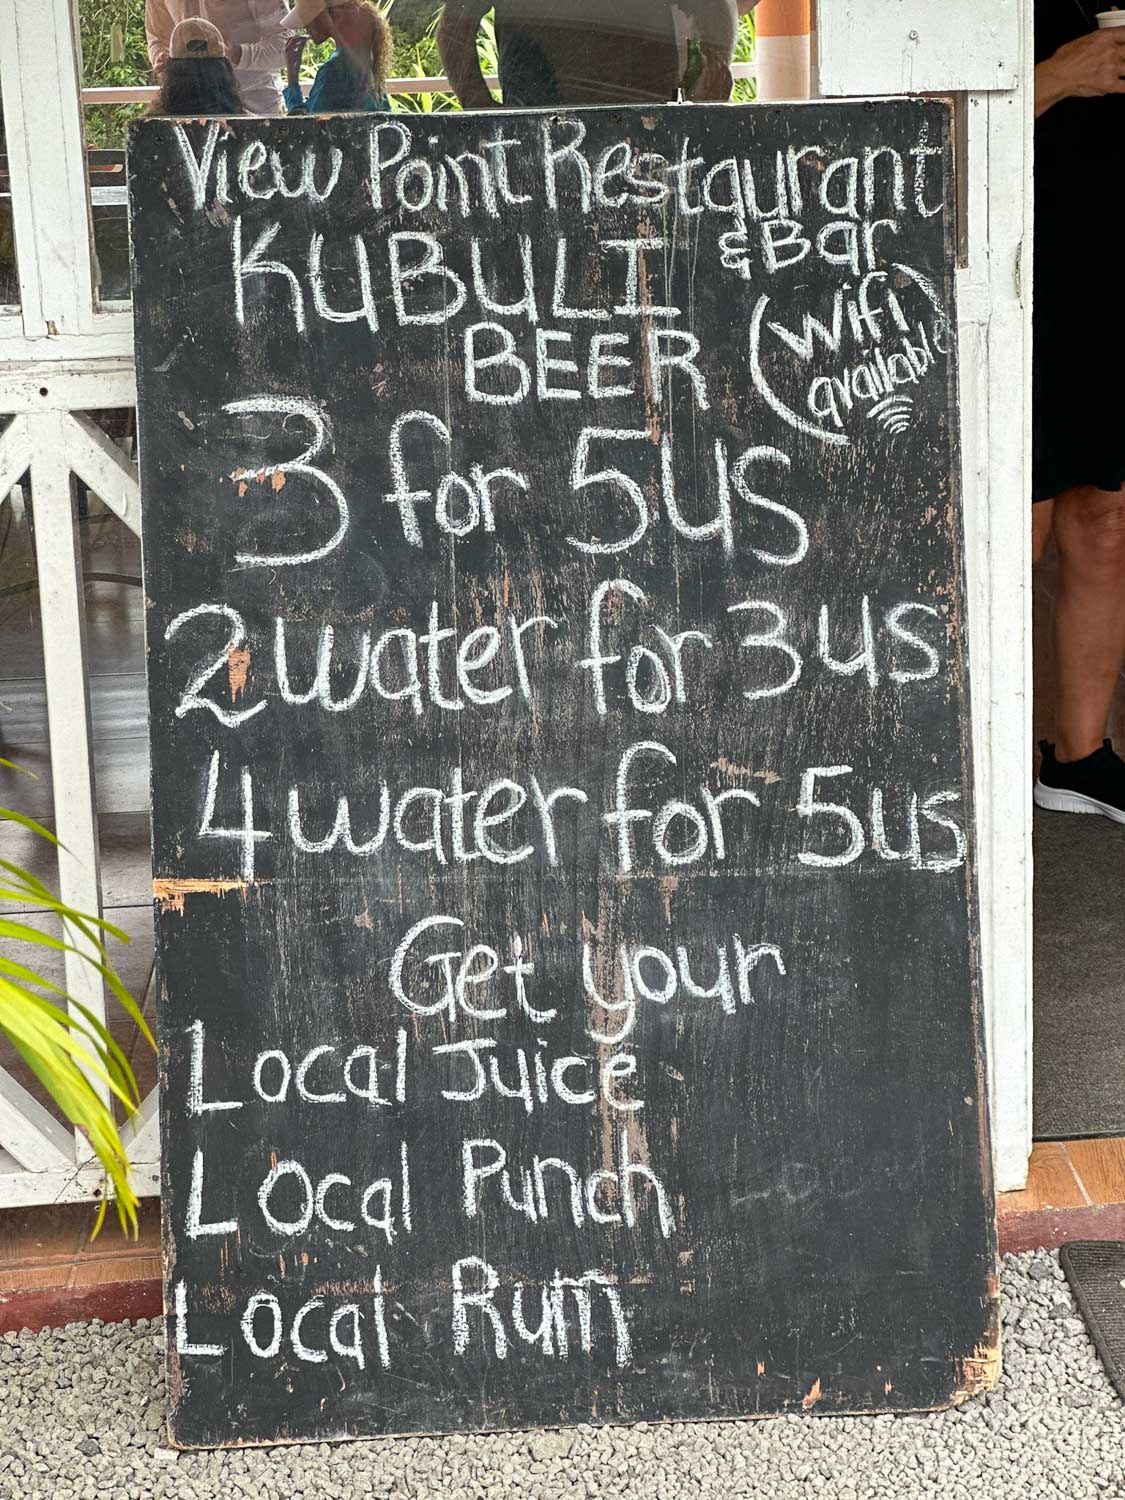 View Point Restaurant
& Bar
KUBULI
BEER
(Wifi
available)
3 for 5us
2 water for 3us
4 water for 5us
Get your
Local Juice
Local Punch
Local Rum